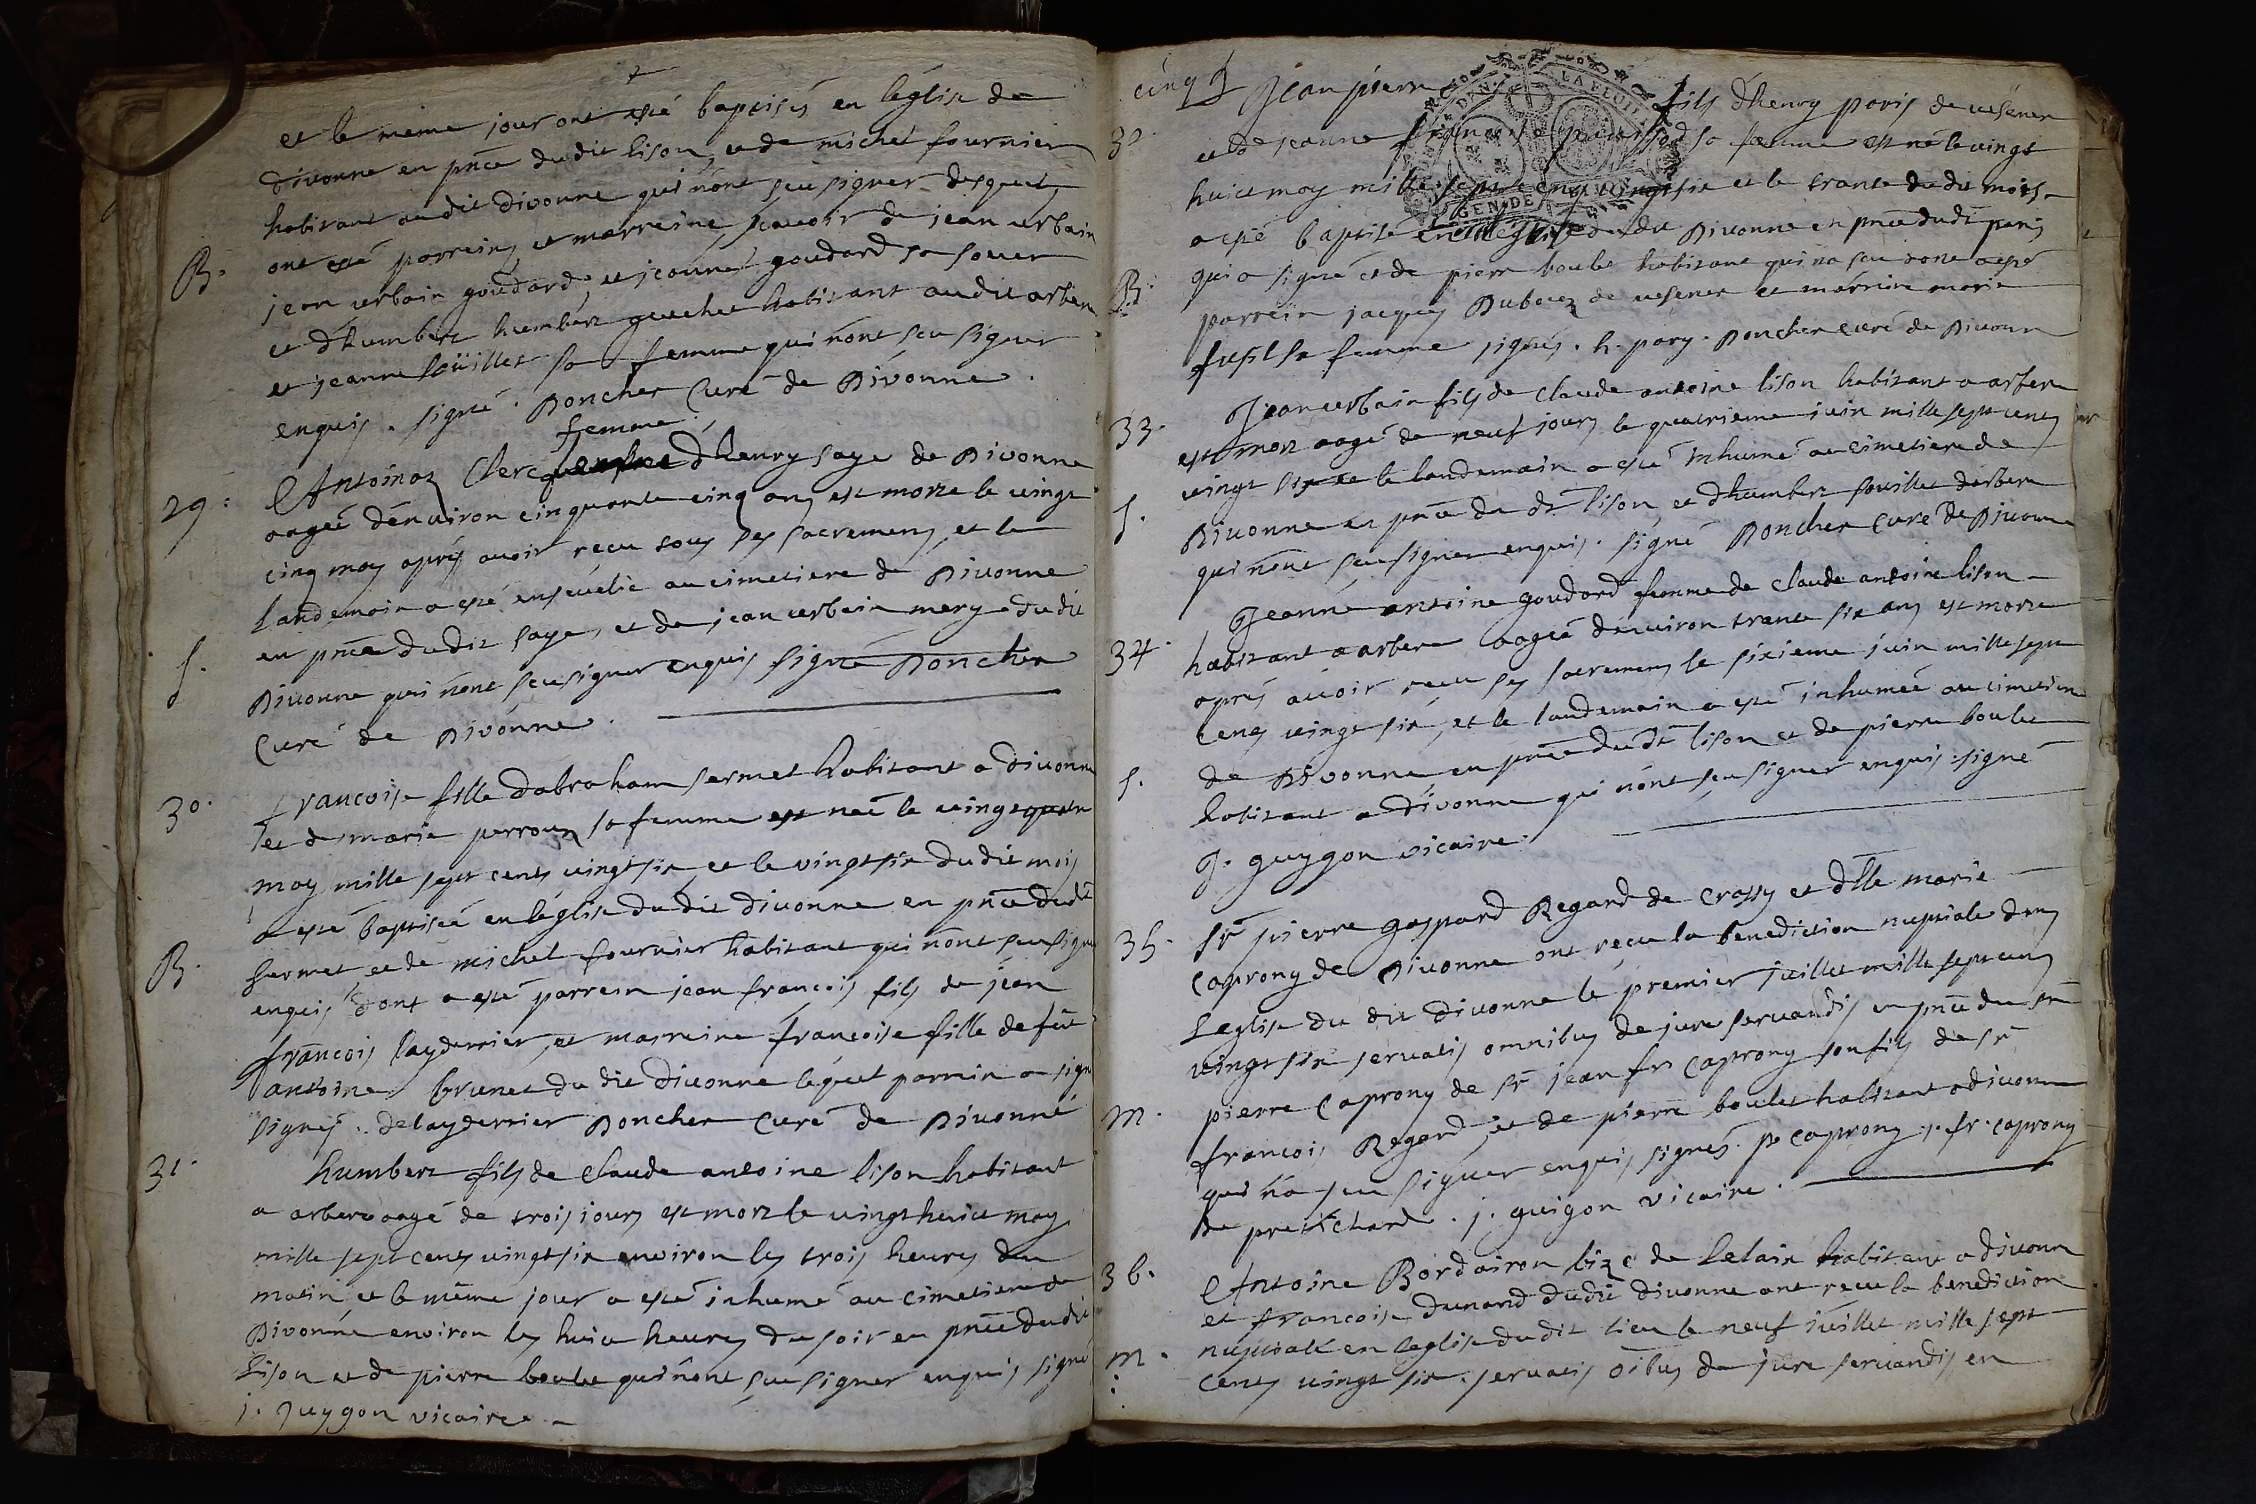 et le meme jour ont esté baptisés en léglise de
divonne en pnce dudit lison, et de michel fournier
habitant audit divonne qui nont sceu signer desquels
B.
ont esté parreins et marreine, scavoir de jean urbain
jean urbain goudard, et jeanne goudard sa soeur
et d'humbert humbert guechet habitant audit arbere
et jeanne souillet sa femme qui nont sceu signer
enquis. signé. Poncher Curé de Divonne.
femme
29. Antoinaz Clerc d'henry saye de Divonne
aagée dénuiron cinquante cinq ans est morte le vingt
cinq may aprés avoir receu tous ses sacremens, et le
landemain a esté ensevelie au cimetiere de Divonne
en pnce dudit saye, et de jean urbain mery dudit
S.
Divonne qui nont sceu signer enquis signé Poncher
Curé de Divonne.
30. francoise fille dabraham sermet habitant a divonne
et de marie perrouz sa femme est neé le vingt quatre
may mille sept cents vingt six et le vingt six dudit mois
a esté baptiseé en léglise dudit divonne en pnce dudt
B.
sermet et de michel fournier habitant qui nont sceu signer
enquis dont a esté parrein jean francois fils de jean
francois laydernier, et marreine francoise fille de feu
antoine brunet dudit divonne lequel parrein a signé
signés. delaydernier Poncher Curé de Divonne
31. humbert fils de Claude antoine lison habitant
a arbere aagé de trois jours est mort le vingt huict may
mille sept cents vingt six environ les trois heures du
matin et le même jour a esté inhumé au cimetiere de
Divonne environ les huict heures du soir en pnce dudit
Lison et de pierre boulet qui nont sceu signer enquis signé
j. guygon vicaire
cinq Jean pierre fils d'henry paris de vesener
32 et de jeanne francoise sa femme est né le vingt
huict may mille sept cents vingt six et le trante dudit mois
a esté baptisé en léglise dudit Divonne en pnce dudt paris
B.
qui a signé et de pierre boulet habitant qui na sceu dont a esté
parrein jacques Dubouz de vesener et marreine marie
fusil sa femme signés. h. pary. Poncher curé de Divonne
33. Jean urbain fils de Claude antoine lison habitant a arbere
est mort aagé de neuf jours le quatrieme juin mille sept cents
vingt six et le landemain a esté inhumé au cimetiere de
S.
Divonne en pnce du dt lison, et d'humbert souillet darbere
qui nont sceu signer enquis. signé Poncher Curé de Divonne
Jeanne antoine goudard femme de Claude antoine lison
34. habitant a arbere aagée dénuiron trante six ans est morte
aprés avoir receu ses sacremens le sixieme juin mille sept
cens vingt six, et le landemain a esté inhumeé au cimetiere
de Divonne en pnce dudt lison et de pierre boulet
S.
habitant a divonne qui nont sceu signer enquis signé
J. guygon vicaire.
35. Sr pierre gaspard Regard de Crassy et dlle marie
Caprony de Divonne ont receu la benediction nuptiale dans
Leglise du dit Divonne le premier juillet mille sept cens
vingt six servatis omnibus de jure servandis en pnce du sr
M.
pierre Caprony de Sr jean fr Caprony son fils de sr
francois Regard, et de pierre boulet habitant a divonne
qui na sceu signer enquis signés. P Caprony j. fr. caprony
j. guigon vicaire.
36. Antoine Bordairon de Lelaix habitant a divonne
et francoise Dunand dudit divonne ont receu la benediction
nuptiale en leglise dudit lieu le neuf juillet mille sept
M.
cents vingt six. servatis oibus de jure servandis en